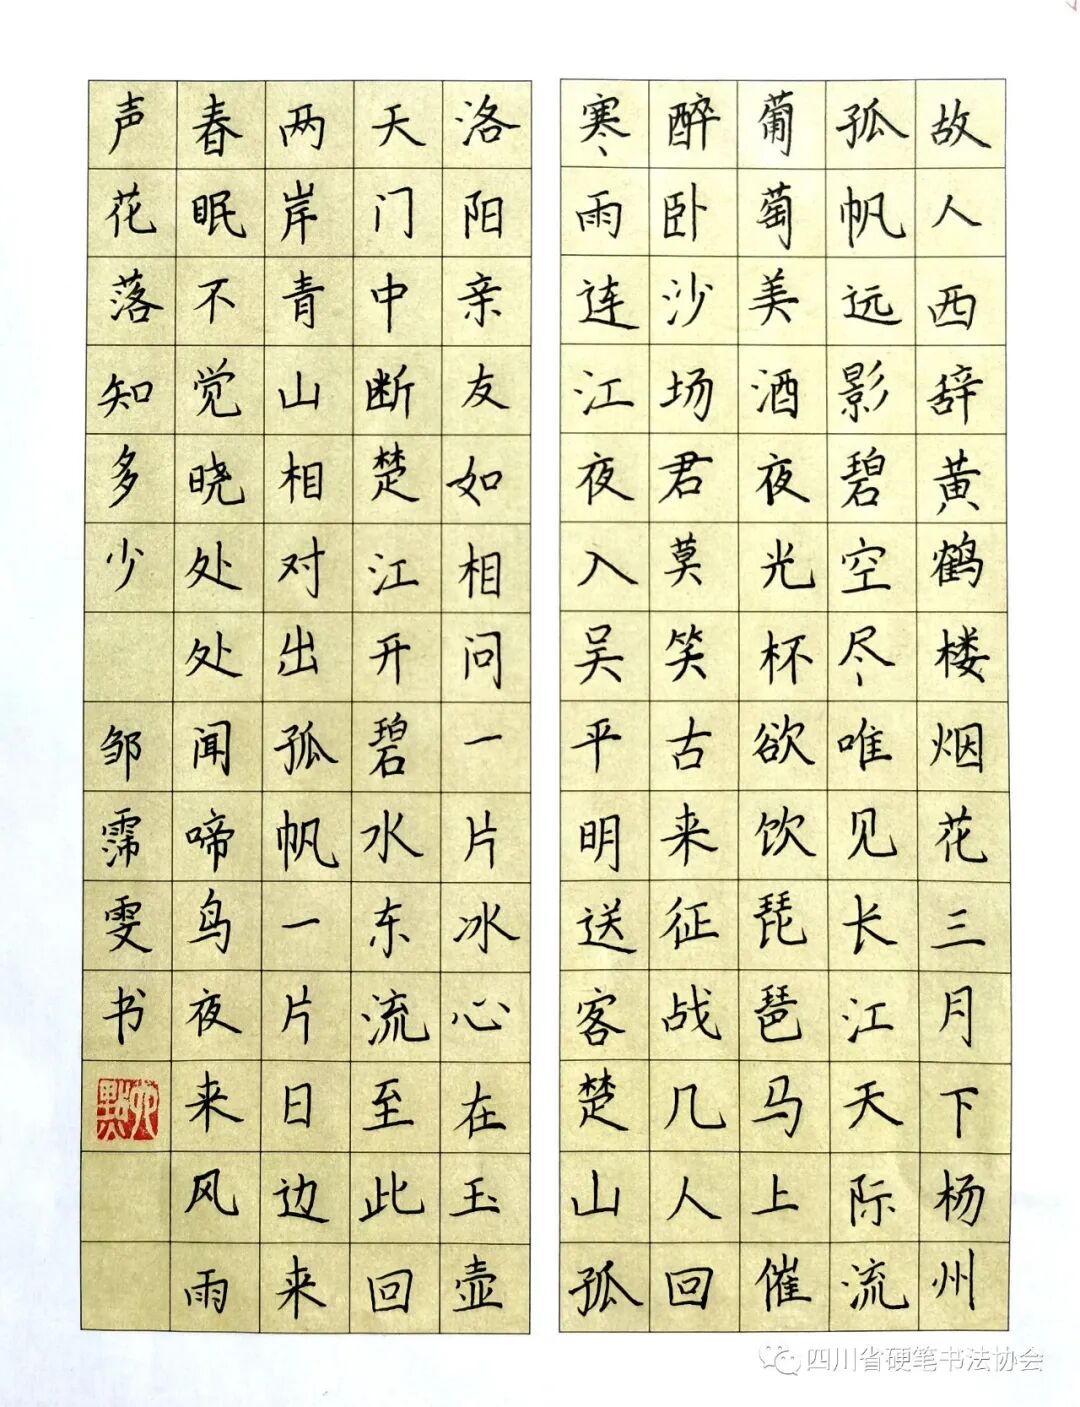 故人西辞黄鹤楼烟花三月下杨州
孤帆远影碧空尽唯见长江天际流
葡萄美酒夜光杯欲饮琵琶马上催
醉卧沙场君莫笑古来征战几人回
寒雨连江夜入吴平明送客楚山孤
洛阳亲友如相问一片冰心在玉壶
天门中断楚江开碧水东流至此回
两岸青山相对出孤帆一片日边来
春眠不觉晓处处闻啼鸟夜来风雨
声花落知多少 邹霈雯书
四川省硬笔书法协会